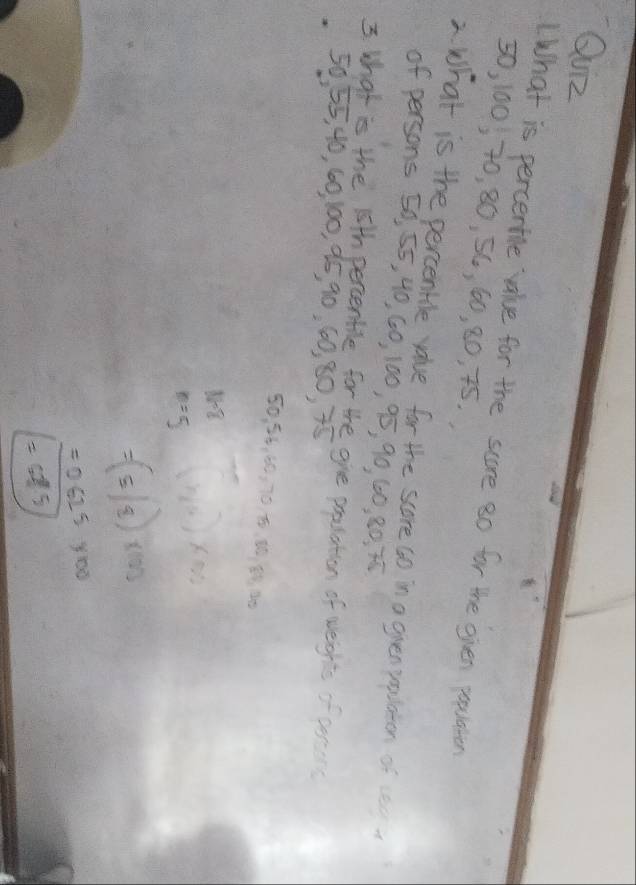 Quiz
1. What is percentile value for the score 80 for the given population
50, 100, 70, 80, 56, 60, 80, 75.
2. What is the percentile value for the score 60 in a given population of
of persons 50, 55, 40, 60, 100, 95, 90, 60, 80, 75
3. What is the 15th percentile for the give population of weights of persons
50, 55, 40, 60, 100, 95, 90, 60, 80, 75
50, 56, 60, 70, 75, 80, 80, 100
N=8
n=5
(n/N) x100
=(5/8) x100
=0.625 x100
= 62.5